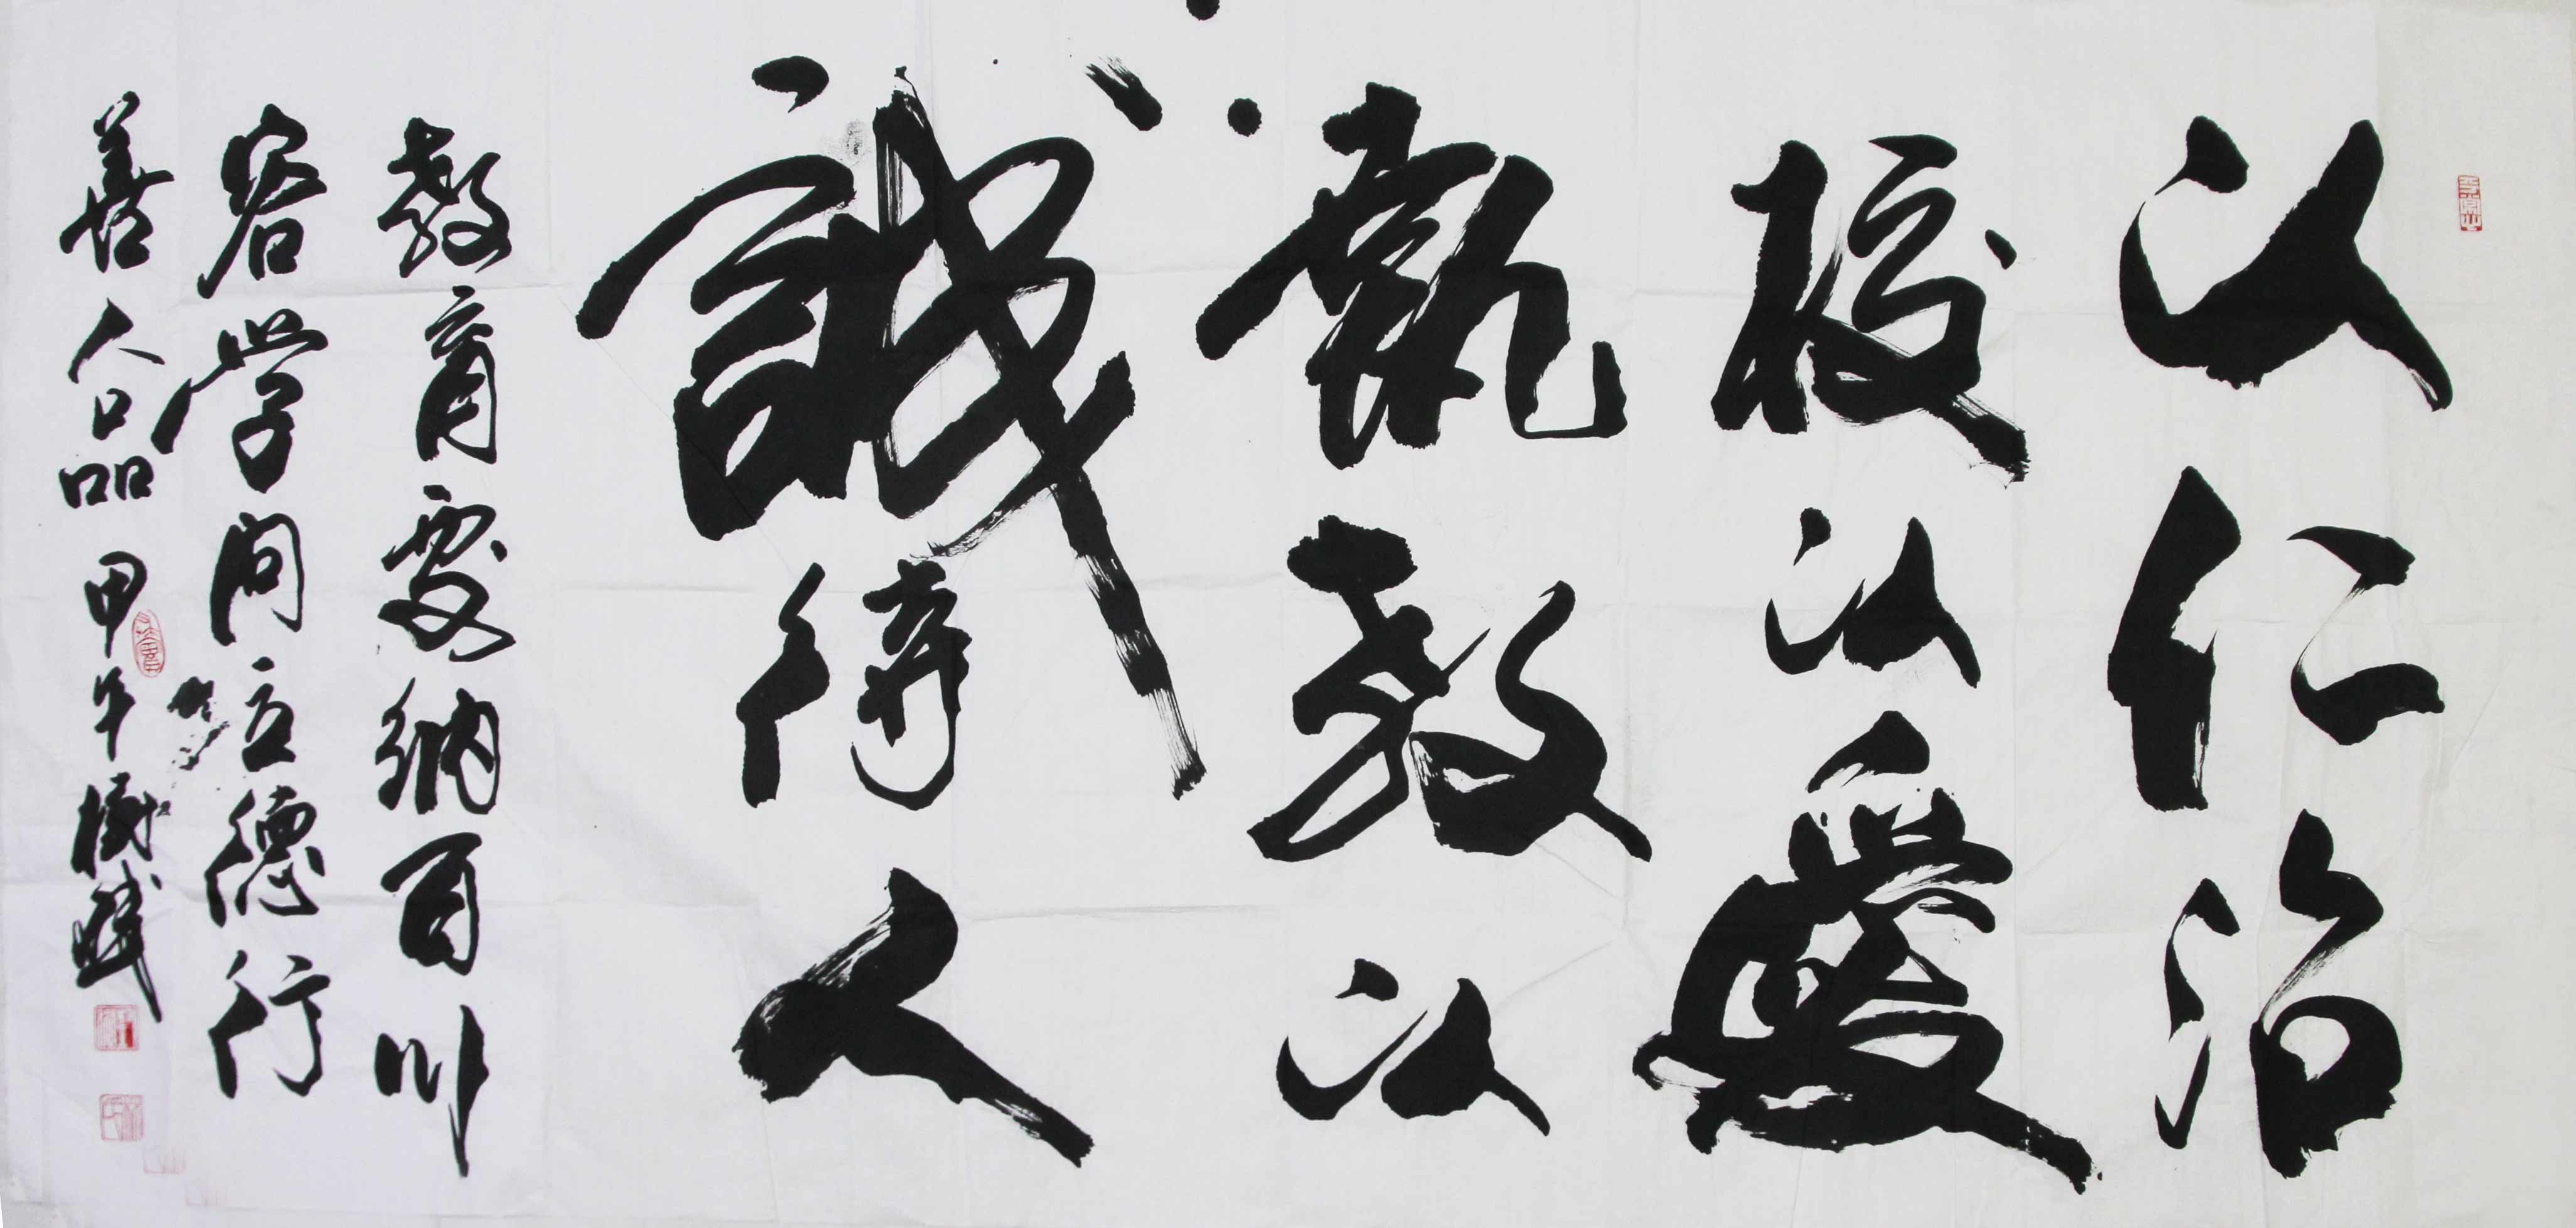 以仁治
校以愛
執教以
誠待人
教育要纳百川
容学问立德行
善人品 甲午